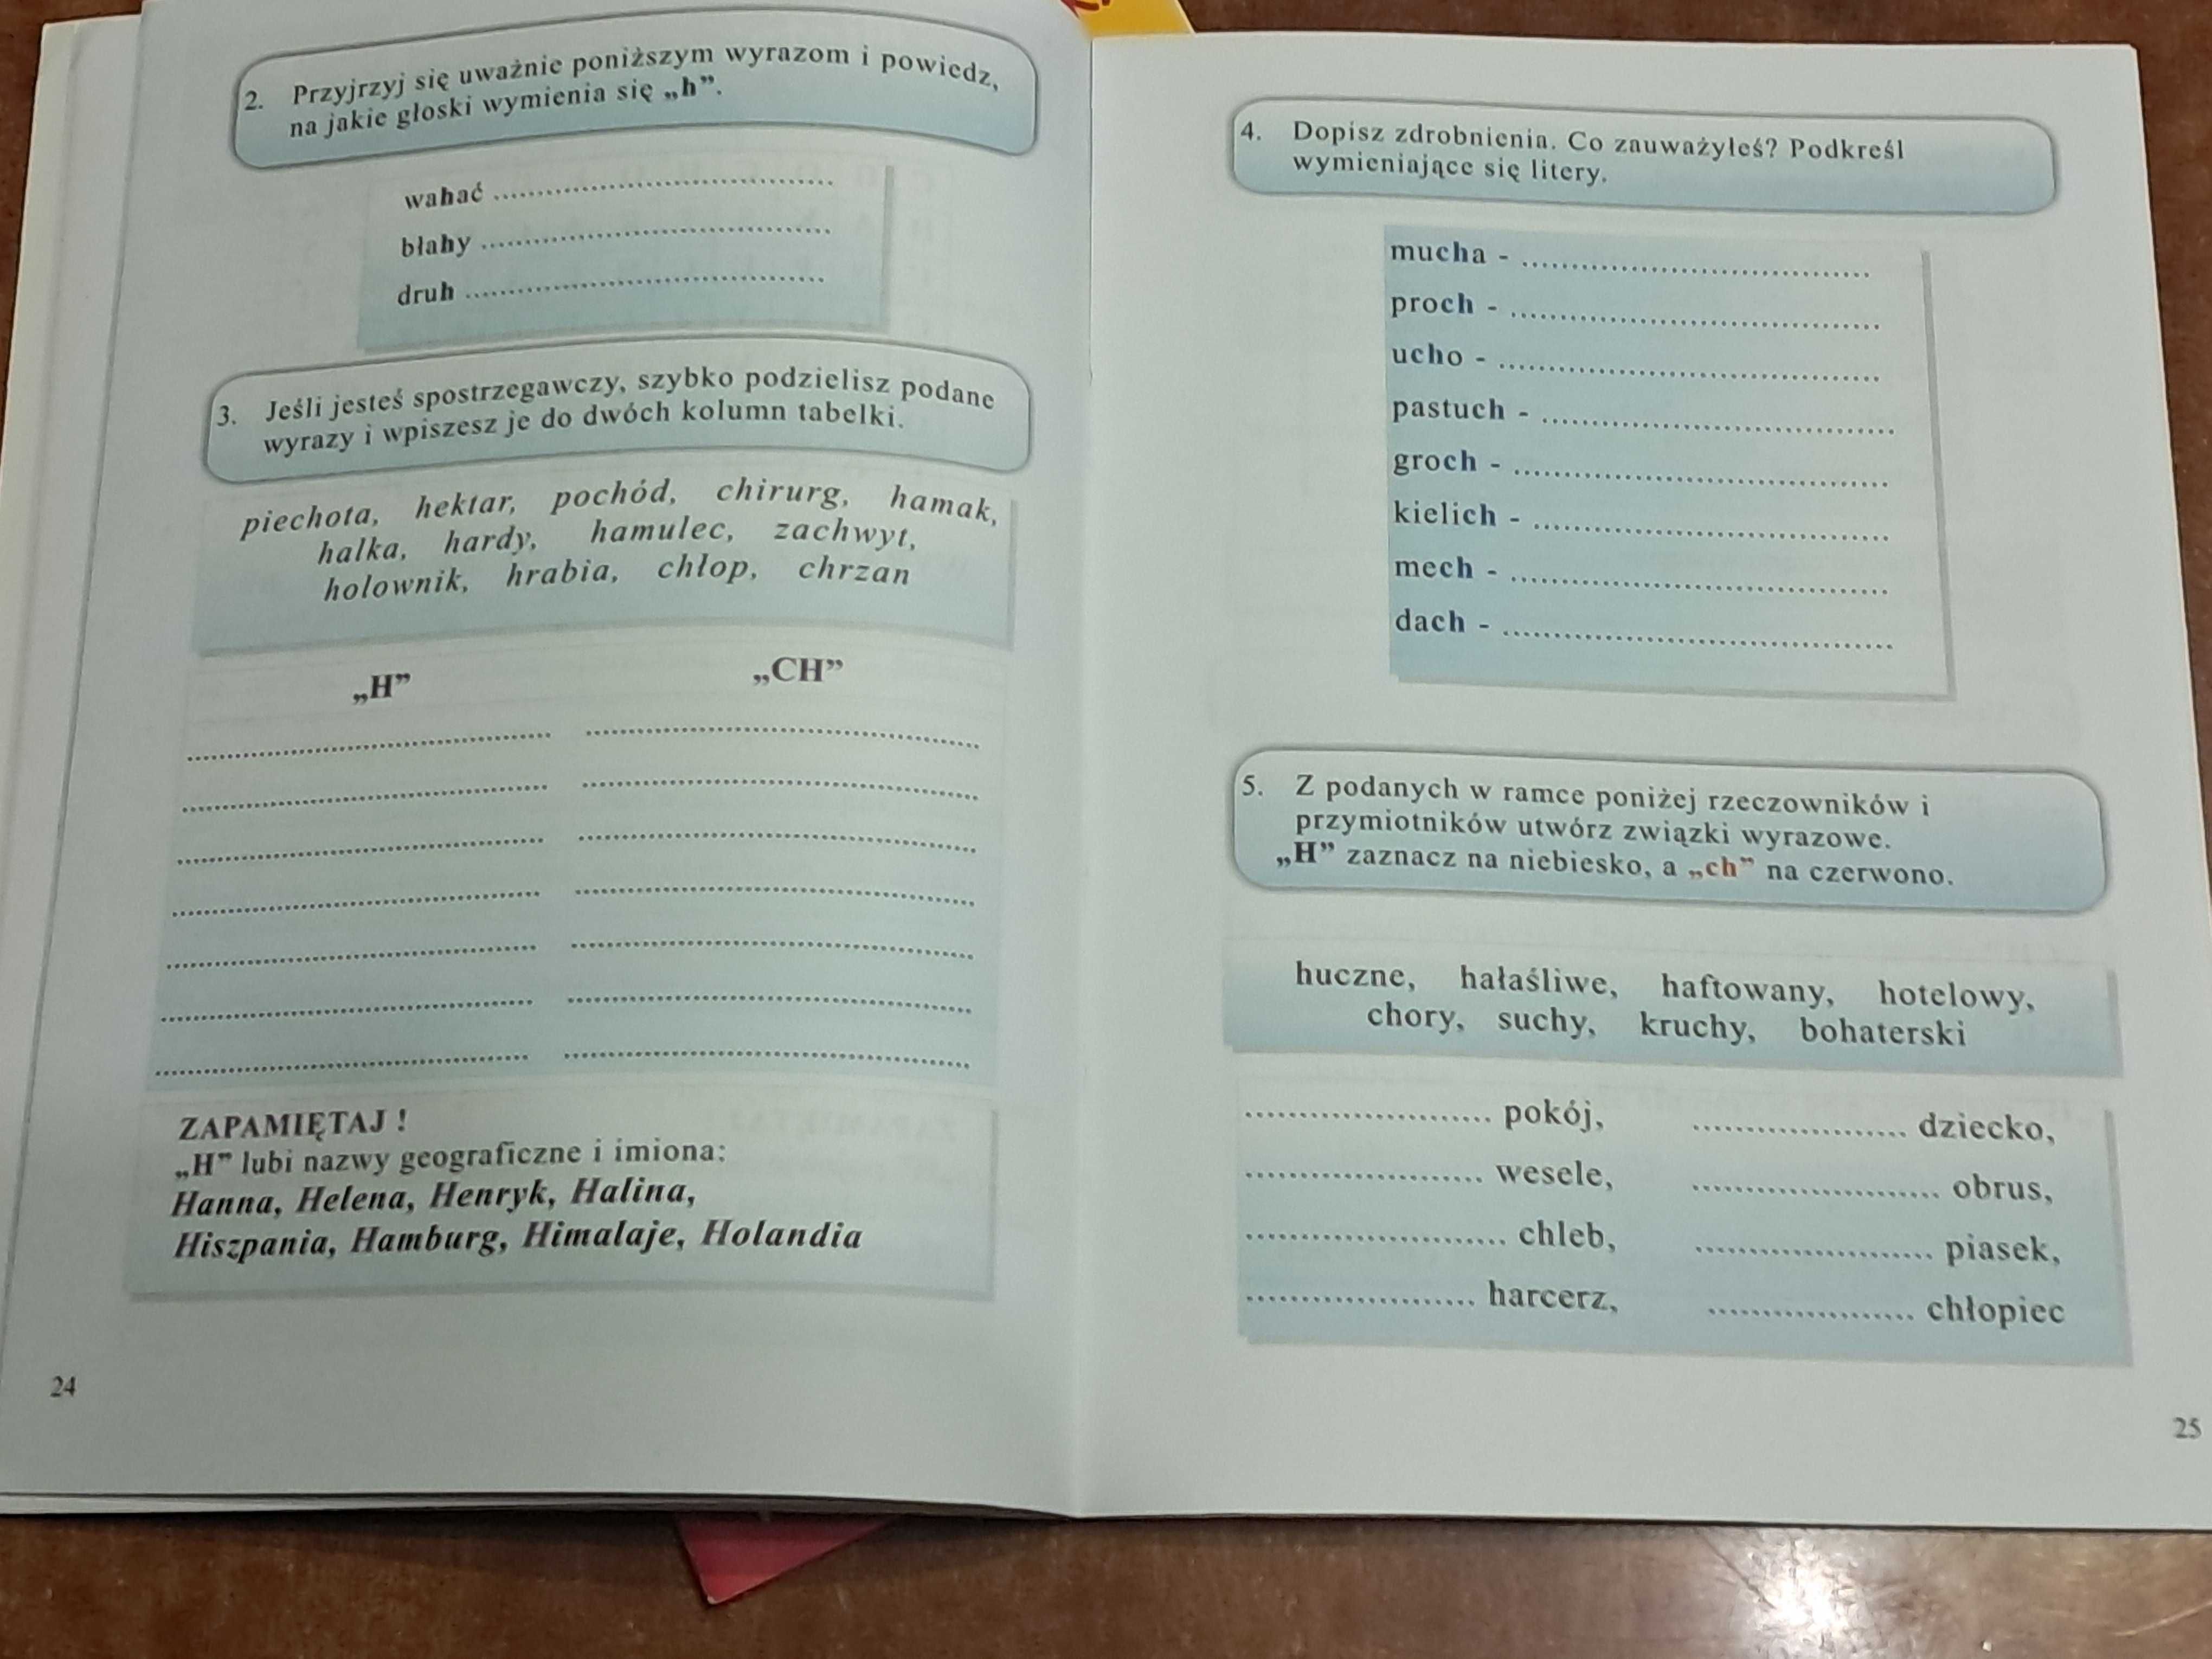 2. Przyjrzyj się uważnie poniższym wyrazom i powiedz,
na jakie głoski wymienia się „h”.
wahać ........................................
błahy ........................................
druh ........................................
3. Jeśli jesteś spostrzegawczy, szybko podzielisz podane
wyrazy i wpiszesz je do dwóch kolumn tabelki.
piechota, hektar, pochód, chirurg, hamak,
halka, hardy, hamulec, zachwyt,
holownik, hrabia, chłop, chrzan
„H” „CH”
ZAPAMIĘTAJ !
„H” lubi nazwy geograficzne i imiona:
Hanna, Helena, Henryk, Halina,
Hiszpania, Hamburg, Himalaje, Holandia
24
4. Dopisz zdrobnienia. Co zauważyłeś? Podkreśl
wymieniające się litery.
mucha - ........................................
proch - ........................................
ucho - ........................................
pastuch - ........................................
groch - ........................................
kielich - ........................................
mech - ........................................
dach - ........................................
5. Z podanych w ramce poniżej rzeczowników i
przymiotników utwórz związki wyrazowe.
„H” zaznacz na niebiesko, a „ch” na czerwono.
huczne, hałaśliwe, haftowany, hotelowy,
chory, suchy, kruchy, bohaterski
........................ pokój, ........................ dziecko,
........................ wesele, ........................ obrus,
........................ chleb, ........................ piasek,
........................ harcerz, ........................ chłopiec
25